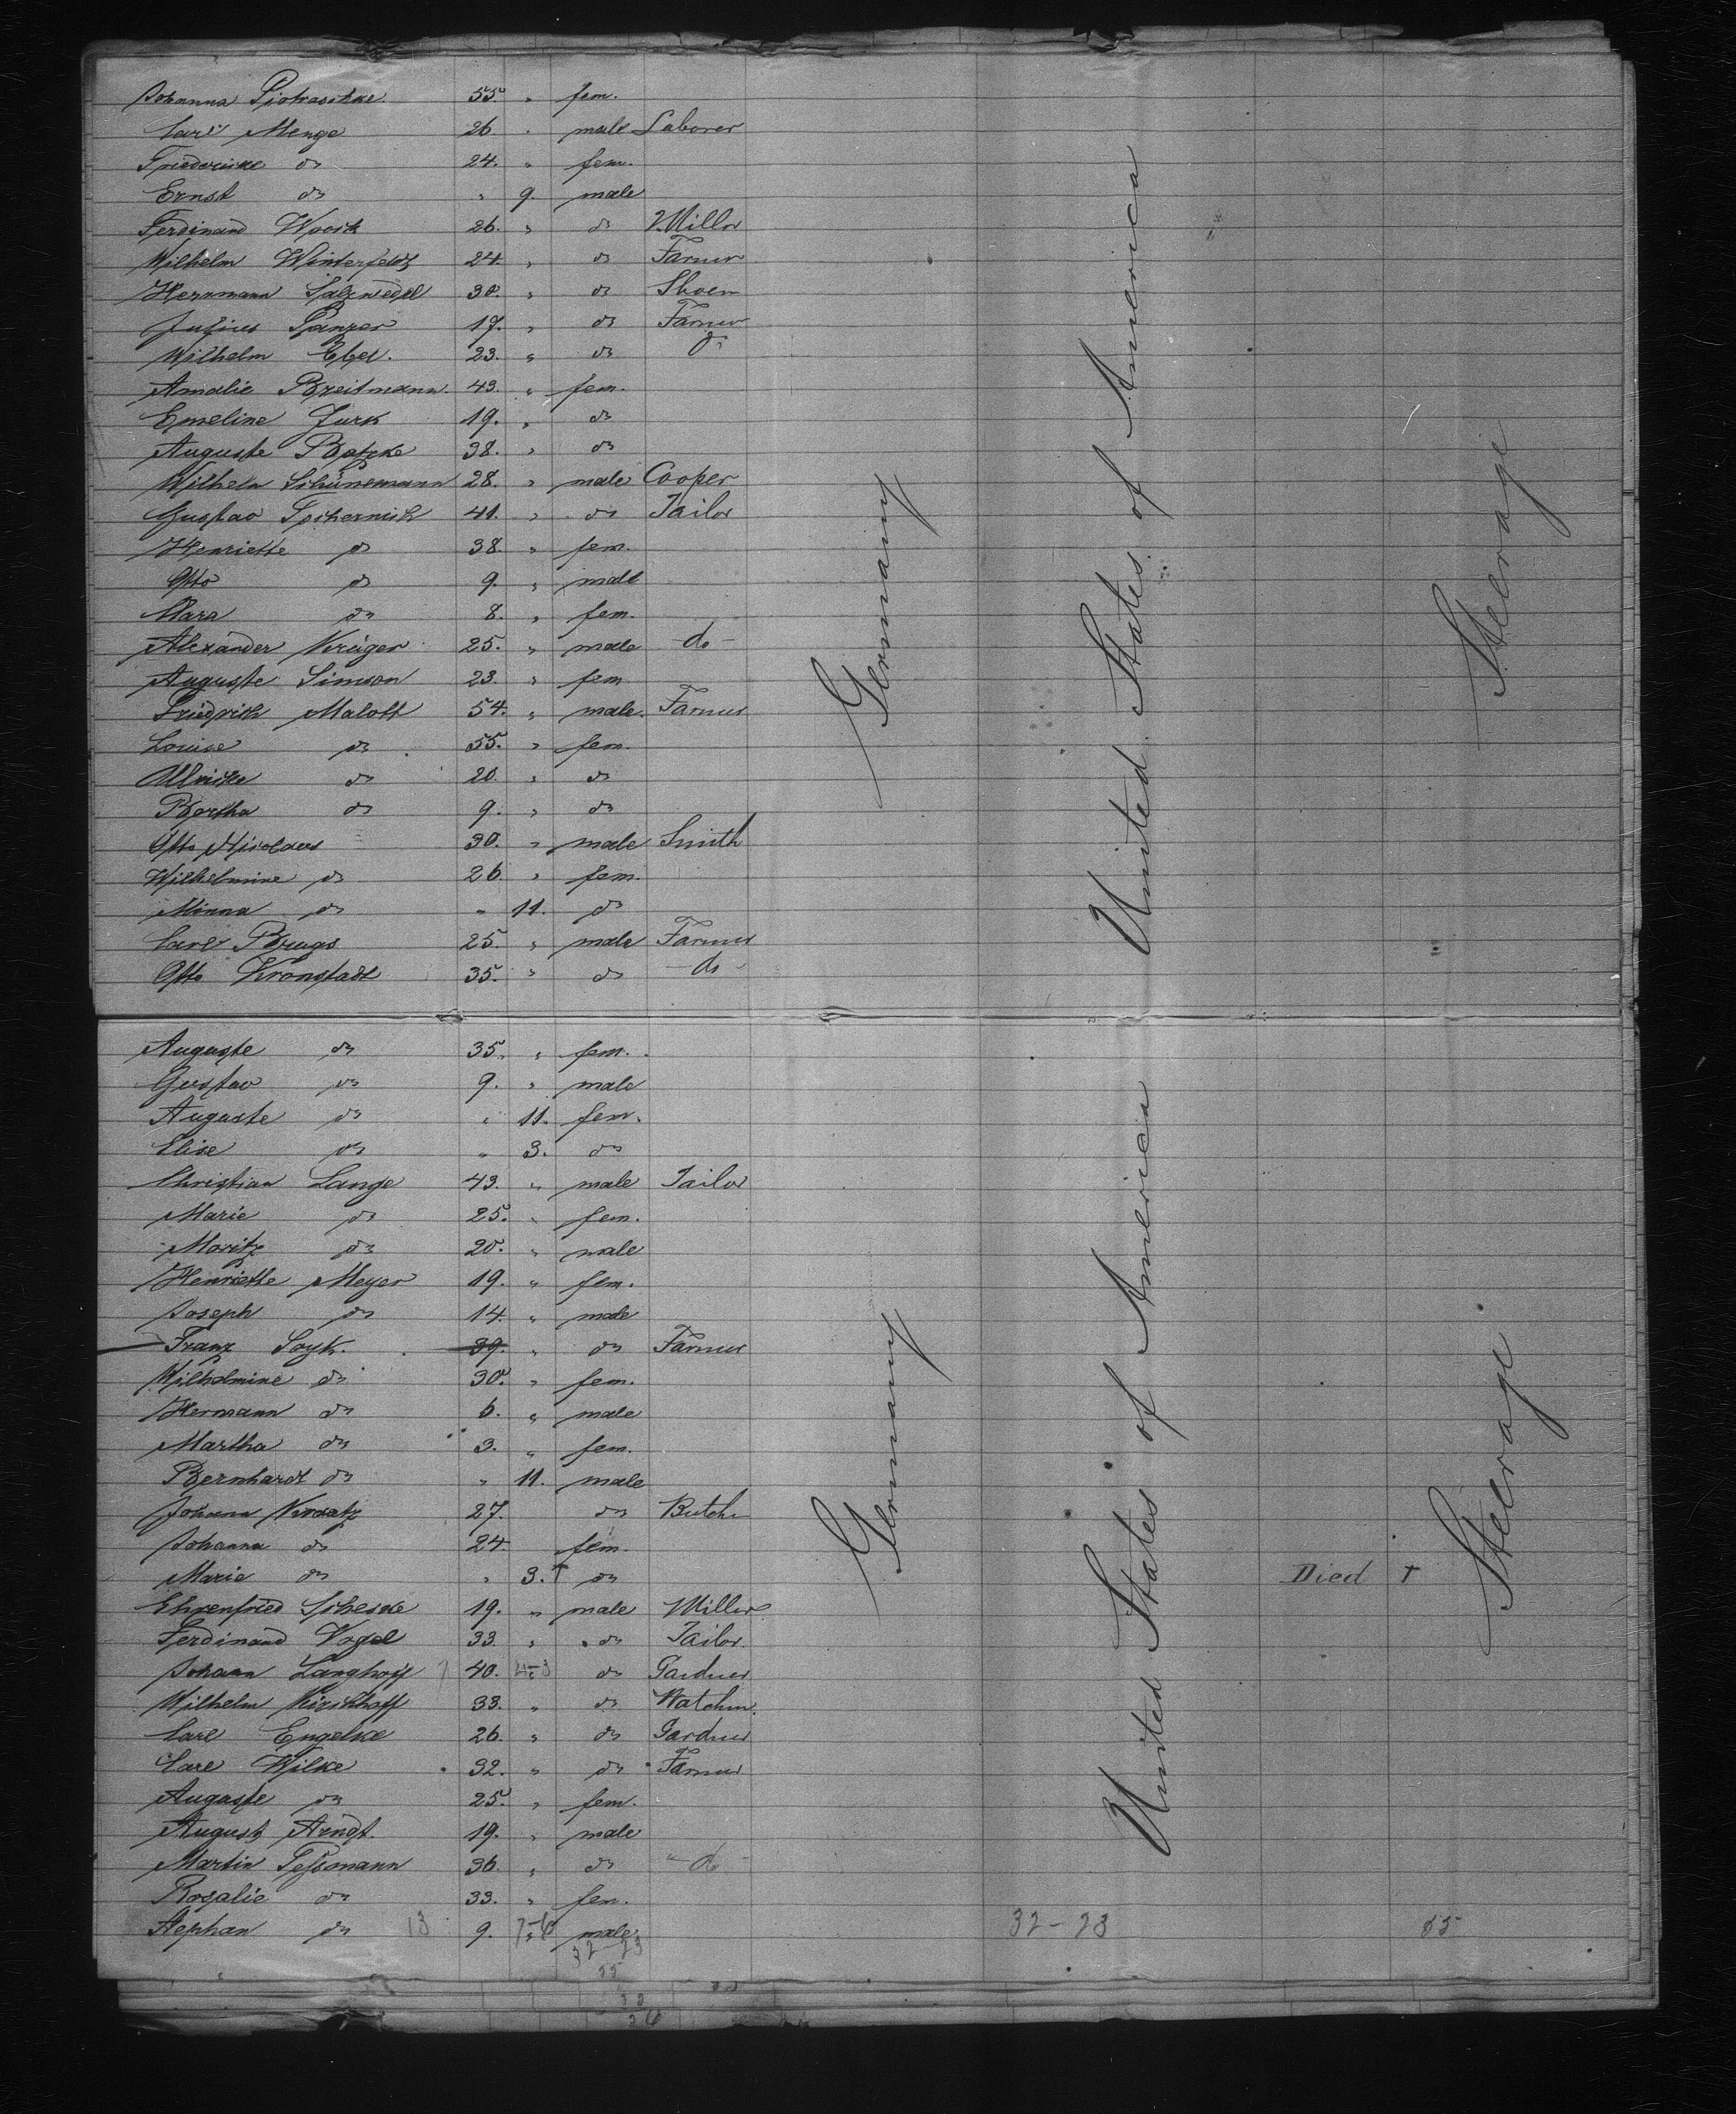 Johanna Piotraschke 55. " fem.
Carl Menge 26. " male Laborer
Friedericke do 24. " fem.
Ernst do " 9. male
Ferdinand Woock 26. " do Miller
Wilhelm Winterfeldt 24. " do Farmer
Herrmann Salzwedel 30. " do Shoem
Julius Panzer 17. " do Farmer
Wilhelm Ebel. 23. " do do
Amalie Breitmann. 43. " fem.
Emeline Jurk 19. " do
Auguste Batzke 38. " do
Wilhelm Schünemann 28. " male Cooper
Gustav Tschernich 41. " do Tailor
Henriette do 38. " fem.
Otto do 9. " male
Mara do 8. " fem.
Alexander Krüger 25. " male - do -
Auguste Simson 23. " fem
Friedrich Malott 54. " male. Farmer
Louise do 55. " fem.
Ulricke do 20. " do
Bertha do 9. " do
Otto Nicolaus 30. " male Smith
Wilhelmine do 26. " fem.
Minna do " 11. do
Carl Brugs 25. " male Farmer
Otto Kronstadt 35. " do - do -
Germany United States of America Steerage
Auguste do 35. " fem.
Gustav do 9. " male
Auguste do " 11. fem.
Elise do " 3. do
Christian Lange 43. " male Tailor
Marie do 25. " fem.
Moritz do 20. " male
Henriette Meyer 19. " fem.
Joseph do 14. " male
Franz Soyk. 39. " do Farmer
Wilhelmine do 30. " fem.
Hermann do 6. " male
Martha do 3. " fem.
Bernhardt do " 11. male
Johann Kraatz 27. do Butche
Johanna do 24. fem.
Marie do " 3. † do Died †
Ehrenfried Scheske 19. " male Miller
Ferdinand Vogel 33. " do Tailor.
Johann Langhoff 40. do Gardner
Wilhelm Kirschhoff 33. " do Watchm.
Carl Engelke 26. " do Gardner
Carl Wilke 32. " do Farmer
Auguste do 25. " fem.
August Arndt. 19. " male
Martin Tessmann 36. " do " do -
Rosalie do 33. " fem.
Stephan do 13 9. 7-6 male 32-23 55
Germany United States of America Steerage
32 23
55
26